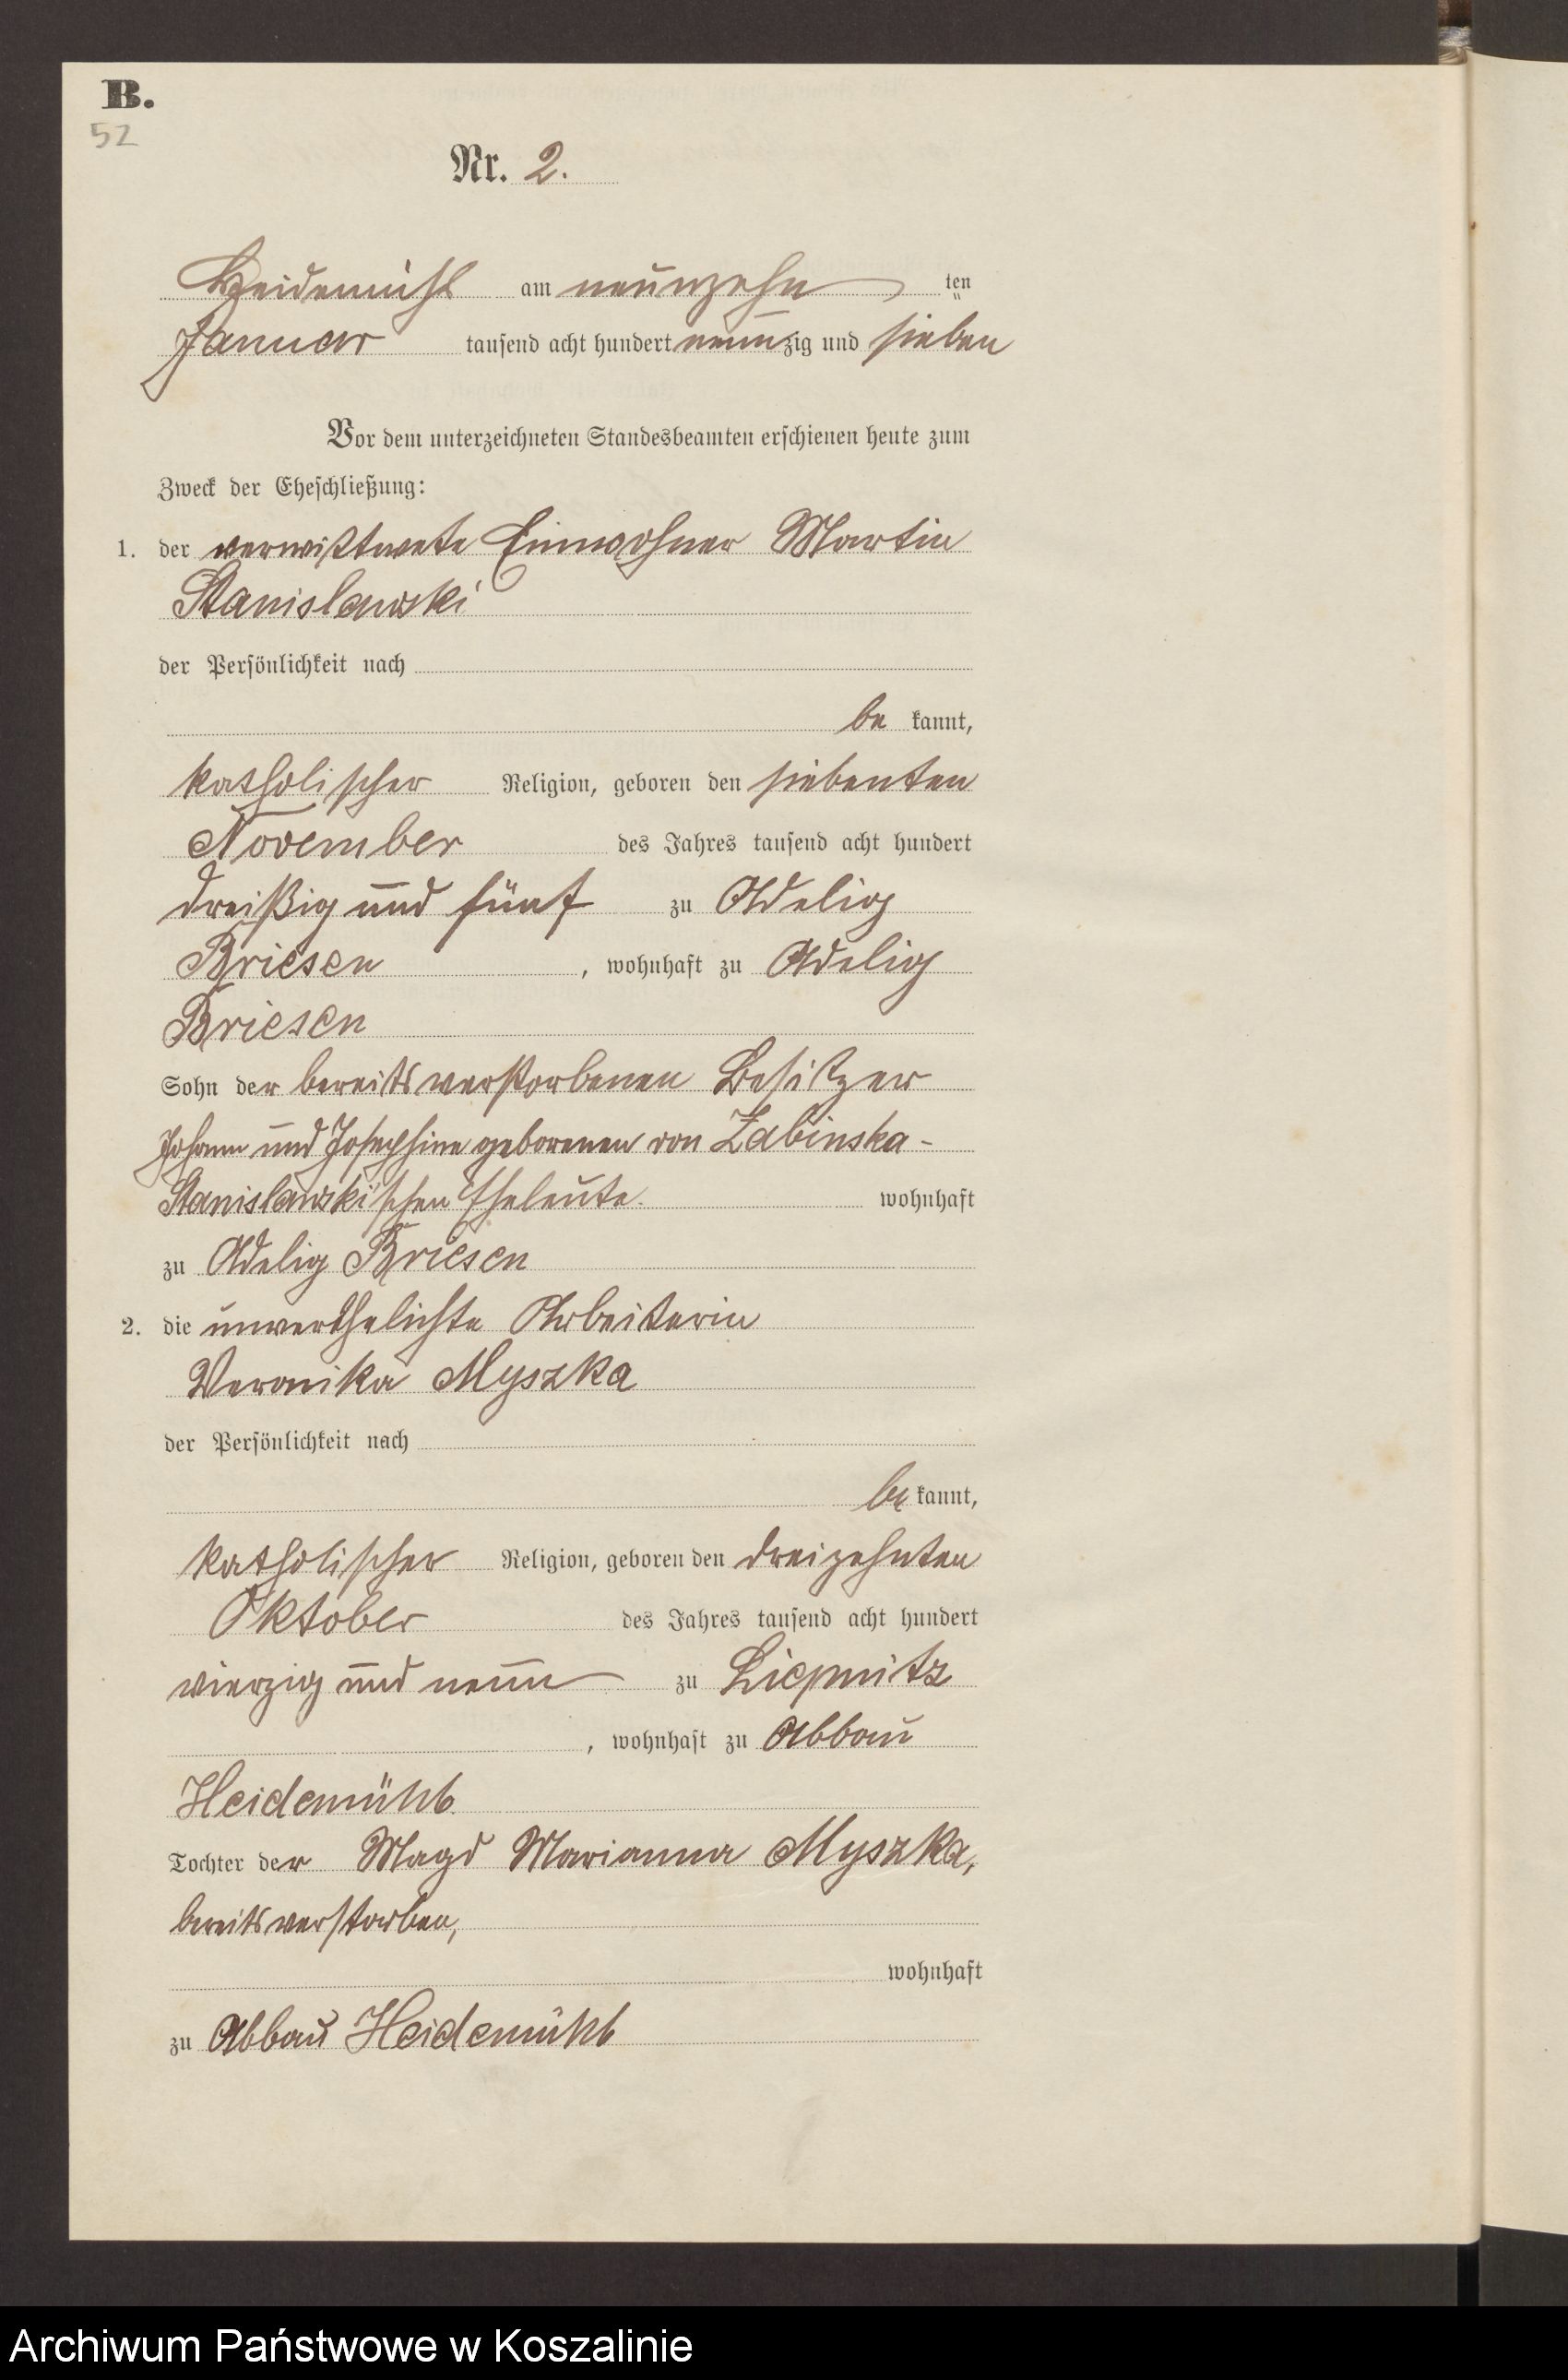 B.
52
Nr. 2.
Heidemühl am neunzehn ten
Januar tausend acht hundert neunzig und sieben
Vor dem unterzeichneten Standesbeamten erschienen heute zum
Zweck der Eheschließung:
1. der verwittwete Einwohner Martin
Stanislawski
der Persönlichkeit nach
be kannt,
katholischer Religion, geboren den siebenten
November des Jahres tausend acht hundert
dreißig und fünf zu Adelig
Briesen, wohnhaft zu Adelig
Briesen
Sohn der bereits verstorbenen Besitzer
Johann und Josephine geborenen von Zabinska-
Stanislawskischen Eheleute. wohnhaft
zu Adelig Briesen
2. die unverehelichte Arbeiterin
Veronika Myszka
der Persönlichkeit nach
be kannt,
katholischer Religion, geboren den dreizehnten
Oktober des Jahres tausend acht hundert
vierzig und neun zu Liepnitz
, wohnhaft zu Abbau
Heidemühl
Tochter der Magd Marianna Myszka,
bereits verstorben,
wohnhaft
zu Abbau Heidemühl
Archiwum Państwowe w Koszalinie